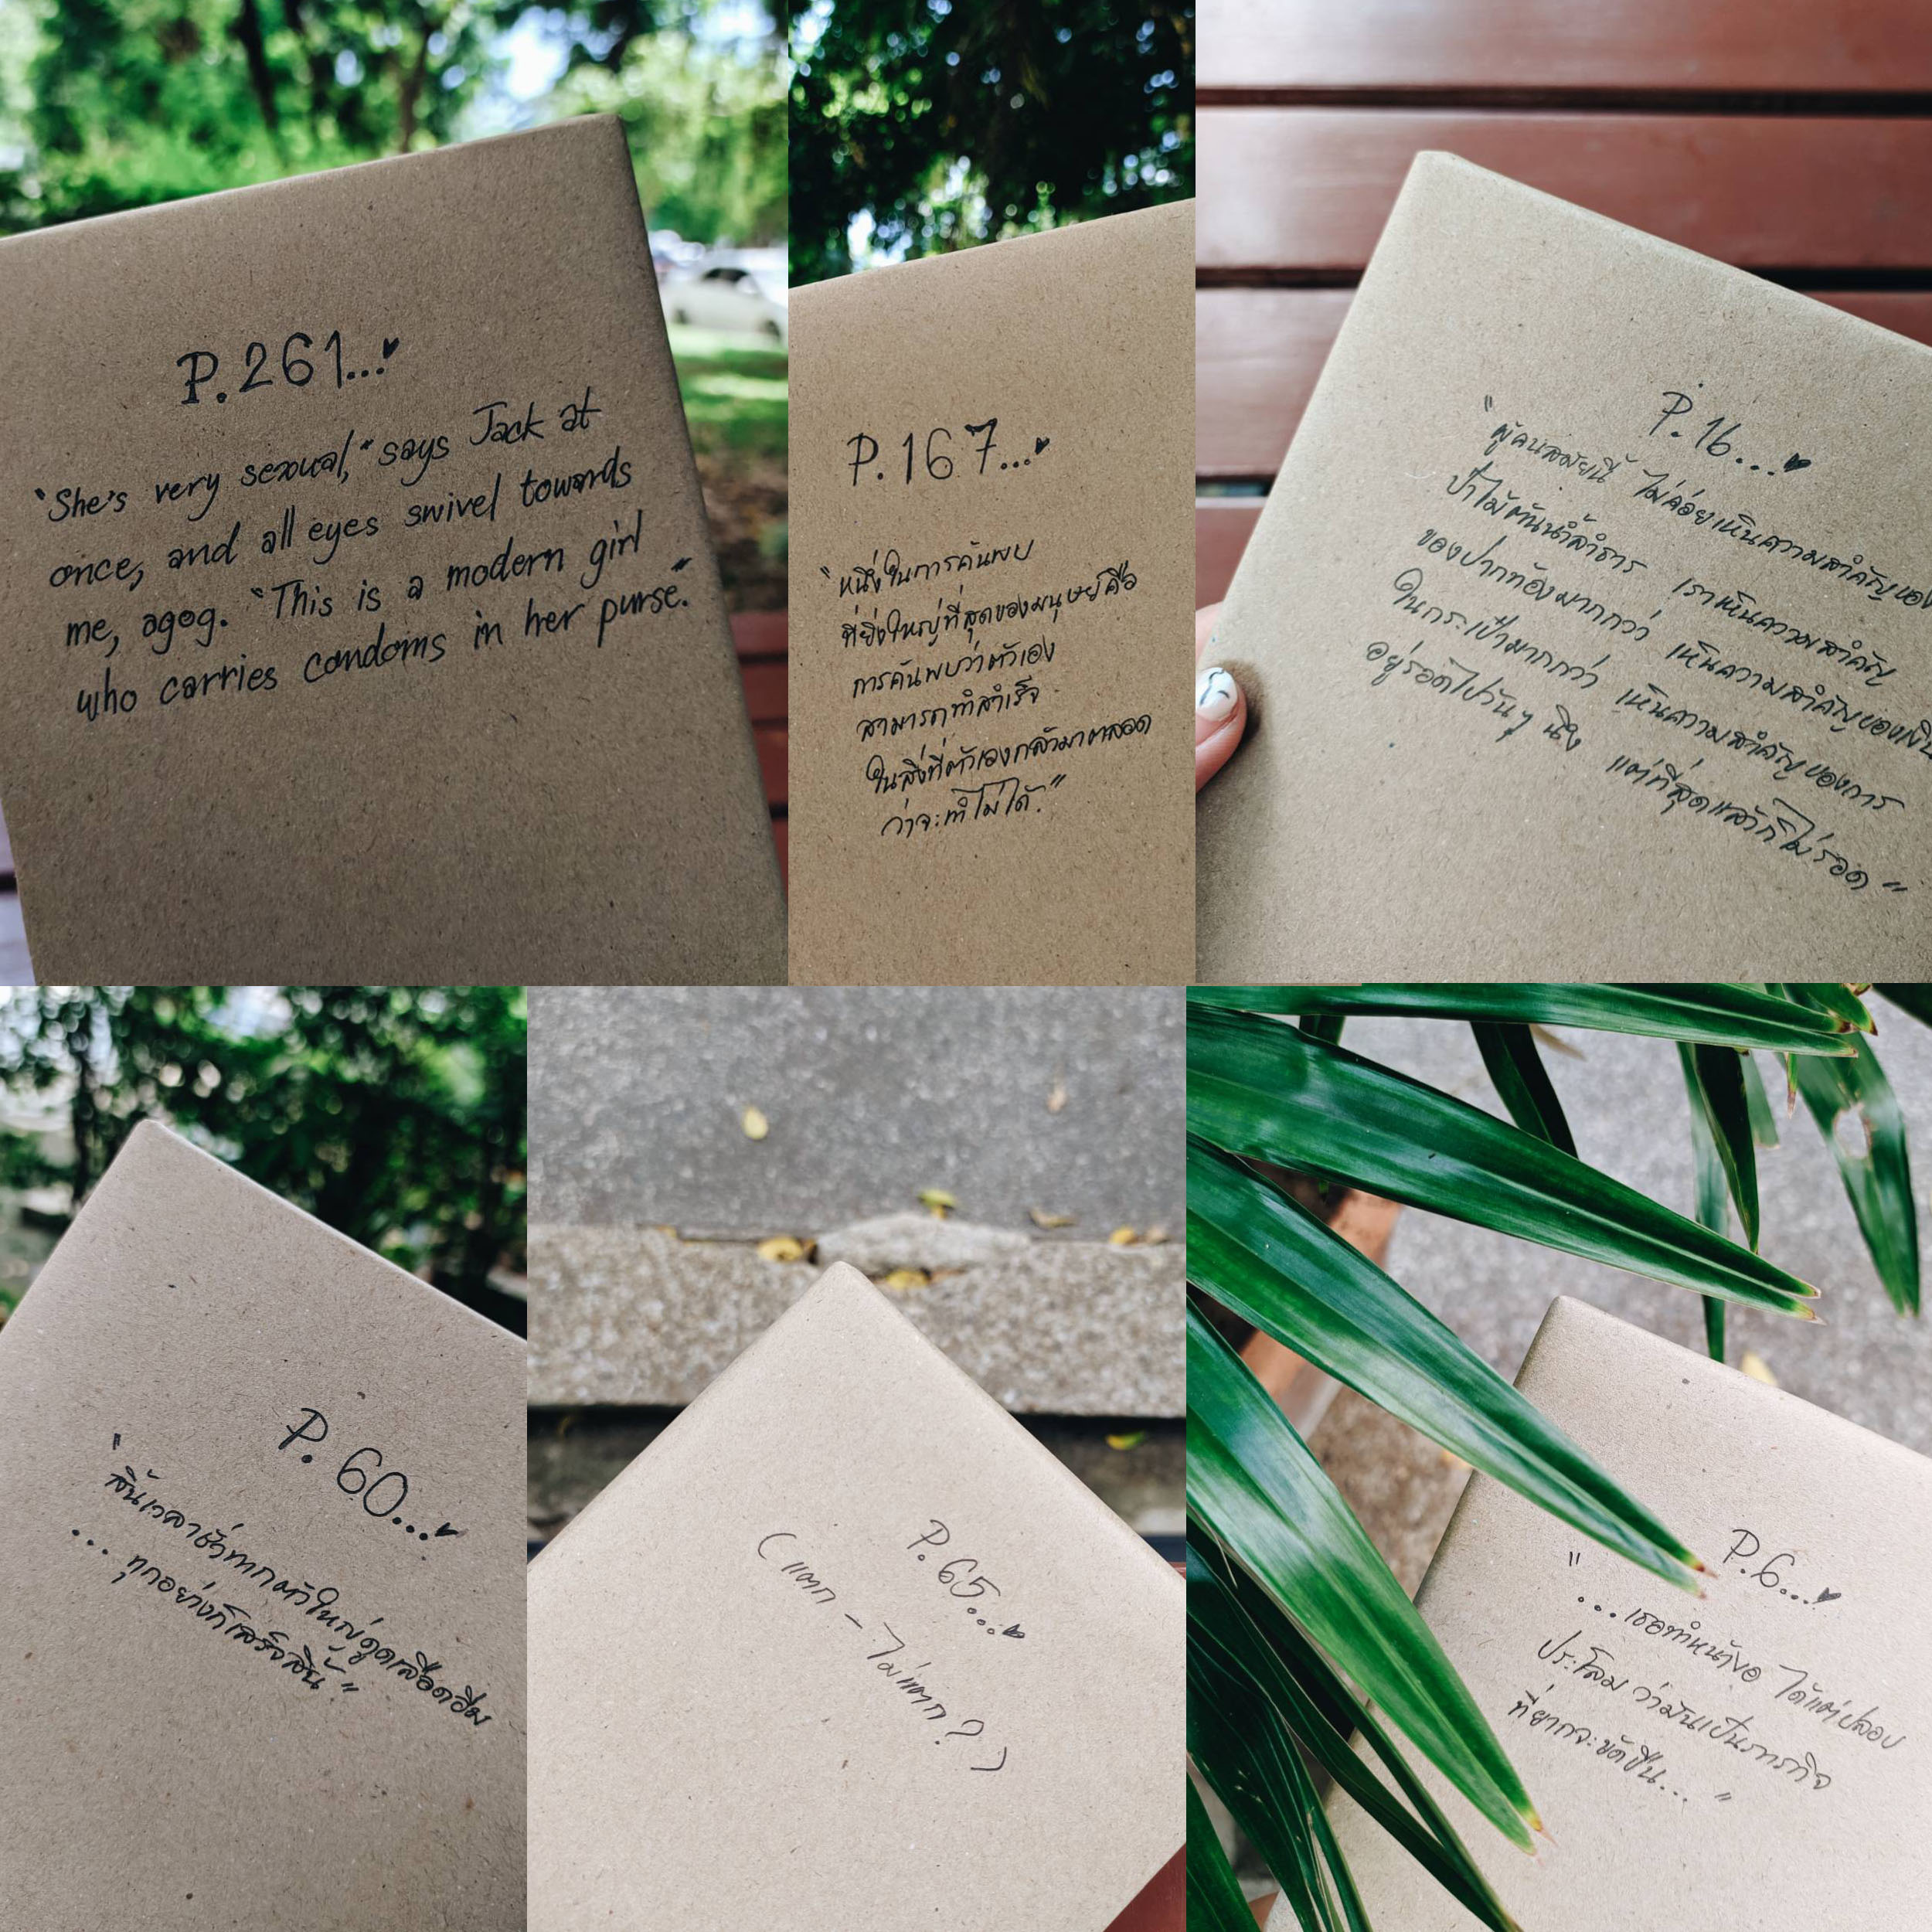 P.261...♥
"She's very sexual," says Jack at
once, and all eyes swivel towards
me, agog. "This is a modern girl
who carries condoms in her purse."
P.167...♥
"หนึ่งในการค้นพบ
ที่ยิ่งใหญ่ที่สุดของมนุษย์คือ
การค้นพบว่าตัวเอง
สามารถทำสำเร็จ
ในสิ่งที่ตัวเองกลัวมาตลอด
ว่าจะทำไม่ได้."
P.16...♥
"ผู้คนสมัยนี้ ไม่ค่อยเห็นความสำคัญของ
ป่าไม้ต้นน้ำลำธาร เราเห็นความสำคัญ
ของปากท้องมากกว่า เห็นความสำคัญของเงิน
ในกระเป๋ามากกว่า เห็นความสำคัญของการ
อยู่รอดไปวันๆ นึง แต่ที่สุดแล้วก็ไม่รอด"
P. 60...♥
"สิ้นเวลาชั่วทากตัวใหญ่ดูดเลือดอิ่ม
... ทุกอย่างก็เสร็จสิ้น"
P.65...♥
(แตก - ไม่แตก?)
P.6...♥
"...เธอทำหน้างอ ได้แต่ปลอบ
ประโลม ว่ามันเป็นภารกิจ
ที่ยากจะขัดขืน..."